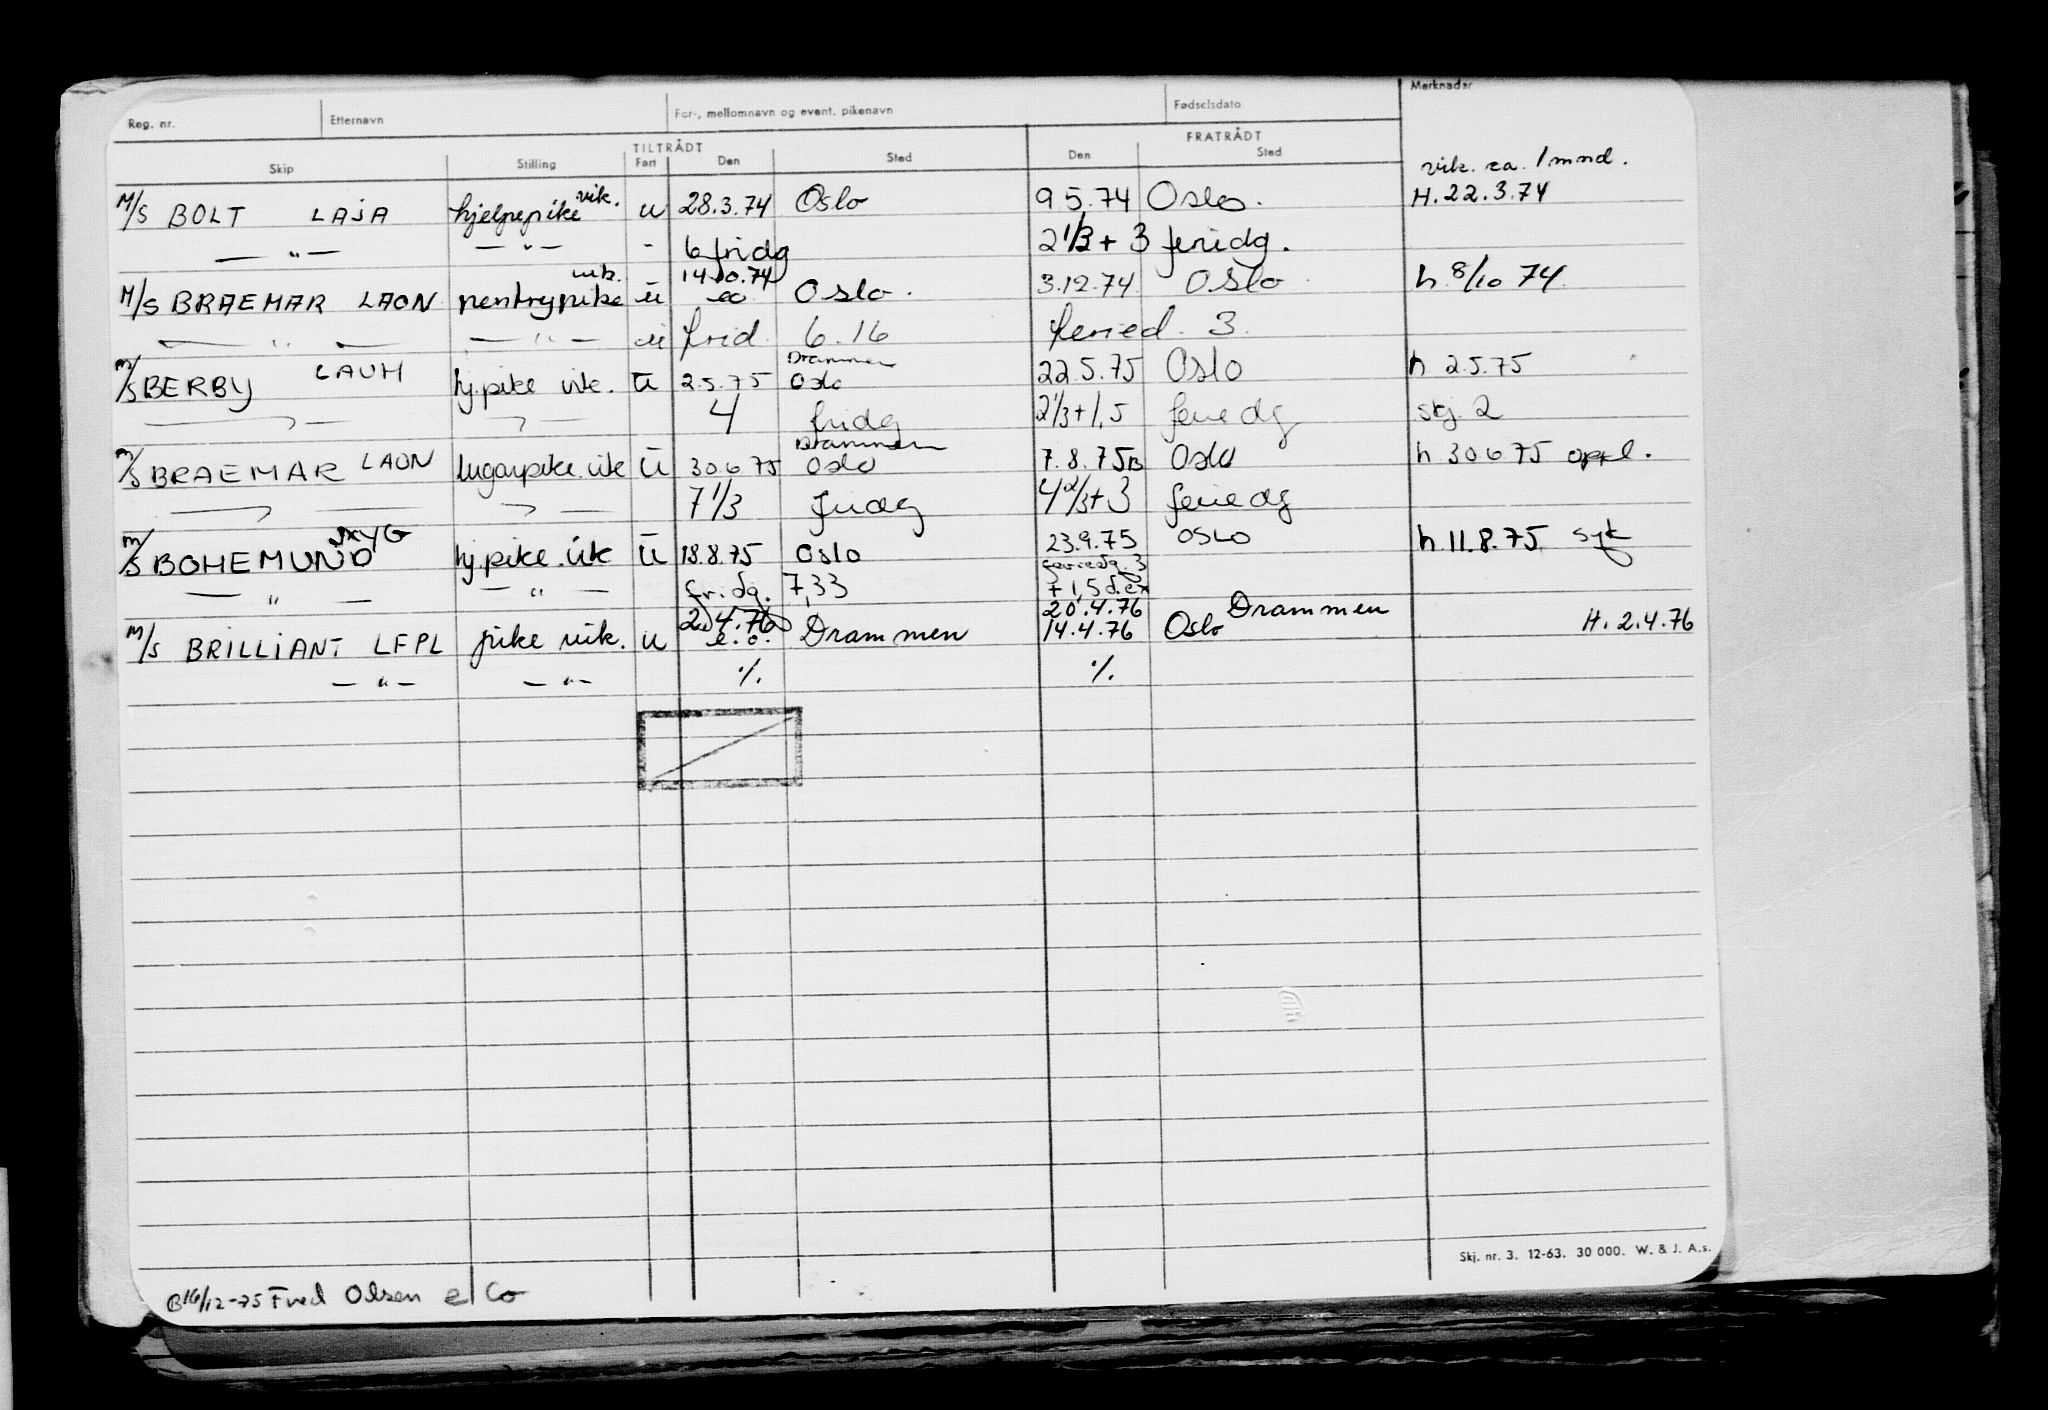 Reg. nr. Etternavn For-, mellomnavn og event. pikenavn Fødselsdato Merknader
TILTRÅDT FRATRÅDT
Skip Stilling Fart Den Sted Den Sted
vik. ca. 1 mnd.
M/S BOLT LAJA hjelpepike vik. u 28.3.74 Oslo 9.5.74 Oslo. H. 22.3.74
— " — — " — - 6 fridg 2 1/3 + 3 feridg.
M/S BRAEMAR LAON pentrypike vik. u 14.10.74 eo Oslo. 3.12.74 Oslo. h 8/10 74
— " — — " — u frid. 6.16 feried. 3.
M/S BERBY LAUH hj.pike vik. u 2.5.75 Drammen Oslo 22.5.75 Oslo h 2.5.75
— " — — " — 4 fridg 2 1/3 + 1,5 feriedg skj. 2
M/S BRAEMAR LAON lugarpike vik u 30.6.75 Drammen Oslo 7.8.75 Oslo h 30 6 75
— " — — " — 7 1/3 fridg 4 2/3 + 3 feriedg
M/S BOHEMUND hj.pike vik u 18.8.75 Oslo 23.9.75 OSLO h. 11.8.75 syk
— " — — " — fridg. 7,33 feriedg. 3 + 1,5 d.ex
M/S BRILLIANT LFPL pike vik. u 2.4.76 e.o. Drammen 20.4.76 Drammen 14.4.76 Oslo H. 2.4.76
— " — — " — ./. ./.
Skj. nr. 3. 12-63. 30 000. W. & J. A.s.
B 16/12-75 Fred Olsen & Co